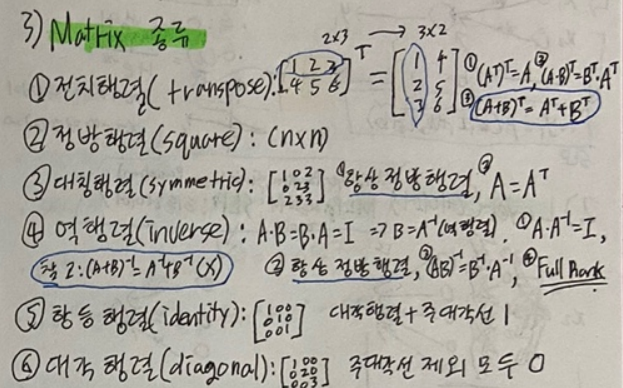 3) Matrix 종류
2x3 → 3x2
① 전치행렬(transpose): [1 2 3 / 4 5 6]ᵀ = [1 4 / 2 5 / 3 6] ① (Aᵀ)ᵀ=A, ② (A·B)ᵀ=Bᵀ·Aᵀ
③ (A+B)ᵀ = Aᵀ+Bᵀ
② 정방행렬(square) : (n×n)
③ 대칭행렬(symmetric): [1 0 2 / 0 2 3 / 2 3 3] ① 항상 정방행렬, ② A=Aᵀ
④ 역행렬(inverse) : A·B=B·A=I ⇒ B=A⁻¹(역행렬). ① A·A⁻¹=I,
2 : (A+B)⁻¹=A⁻¹+B⁻¹ (X) ② 항상 정방행렬, ③ (AB)⁻¹=B⁻¹·A⁻¹, ④ Full Rank
⑤ 항등행렬(identity): [1 0 0 / 0 1 0 / 0 0 1] 대각행렬 + 주대각선 1
⑥ 대각행렬(diagonal): [1 0 0 / 0 2 0 / 0 0 3] 주대각선 제외 모두 0